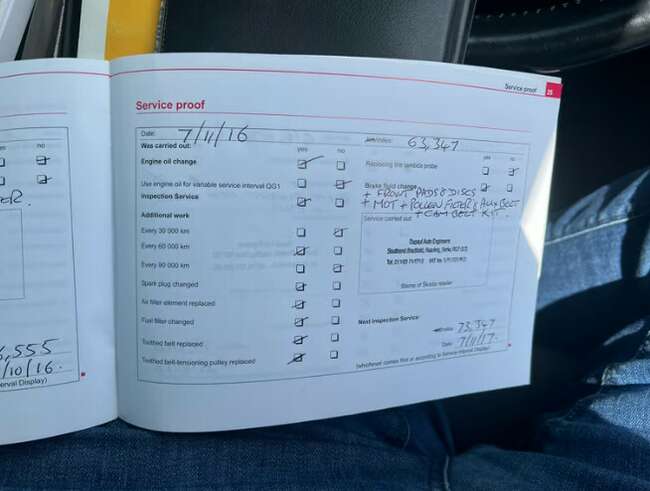 es no
ER.
6,555
/10/16.
erval Display)
Service proof 25
Service proof
Date: 7/11/16
Was carried out: yes no
Engine oil change
Use engine oil for variable service interval QG1
Inspection Service
Additional work
Every 30 000 km
Every 60 000 km
Every 90 000 km
Spark plug changed
Air filter element replaced
Fuel filter changed
Toothed belt replaced
Toothed belt-tensioning pulley replaced
63,347
yes no
Replacing the lambda probe
Brake fluid change
+ FRONT PADS & DISCS
+ MOT + POLLEN FILTER & AUX BELT
+ CAM BELT KIT.
Service carried out
Auto Engineers
Stamp of Skoda retailer
Next Inspection Service:
73,347
Date 7/11/17.
(whichever comes first or according to Service Interval Display)